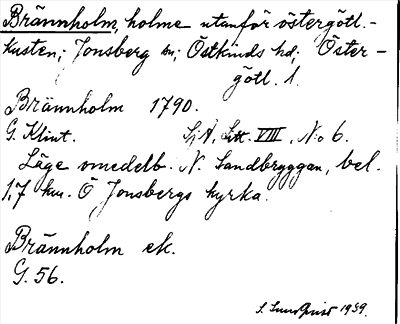 Brännholm, holme utanför östergötl.-
kusten; Jonsberg sn; Östkinds hd; Öster-
götl. l.
Brännholm 1790.
G. Klint. SjA, Litt. VIII, No 6.
Läge omedelb. N. Sandbryggan, bel.
1,7 km. Ö Jonsbergs kyrka.
Brännholm ek.
G. 56.
S. Sundqvist 1939.